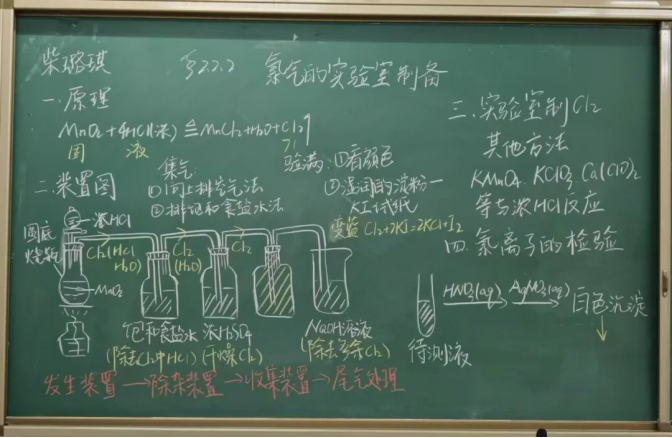 柴璐琪
§2.2.2 氯气的实验室制备
一.原理
MnO2+4HCl(浓)≜MnCl2+H2O+Cl2↑
固 液 气
二.装置图
集气:
①向上排空气法
②排饱和食盐水法
验满:①看颜色
②湿润的淀粉—
KI试纸
变蓝 Cl2+2KI=2KCl+I2
浓HCl
圆底
烧瓶
MnO2
Cl2(HCl
H2O)
Cl2
(H2O)
Cl2
饱和食盐水
(除去Cl2中HCl)
浓H2SO4
(干燥Cl2)
NaOH溶液
(除去多余Cl2)
发生装置→除杂装置→收集装置→尾气处理
三.实验室制Cl2
其他方法
KMnO4 KClO3 Ca(ClO)2
等与浓HCl反应
四.氯离子的检验
待测液
HNO3(aq)
AgNO3(aq)
白色沉淀
↓